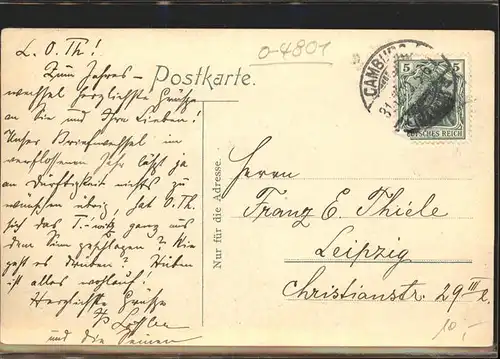 L. O. Th!
Zum Jahres-
wechsel herzlichste Grüße
an Sie und Ihre Lieben!
Unser Briefwechsel im
verflossenen Jahr läßt ja
an Dürftigkeit nichts zu
wünschen übrig, hat O. Th.
sich das ganz aus
dem Sinn geschlagen? Wie
geht es drüben? Hüben
ist alles wohlauf!
Herzlichste Grüße
und die Seinen
o-4801
Postkarte.
CAMBURG
5 5
DEUTSCHES REICH
Nur für die Adresse.
Herrn
Franz E. Thiele
Leipzig
Christianstr. 29 III
10,-